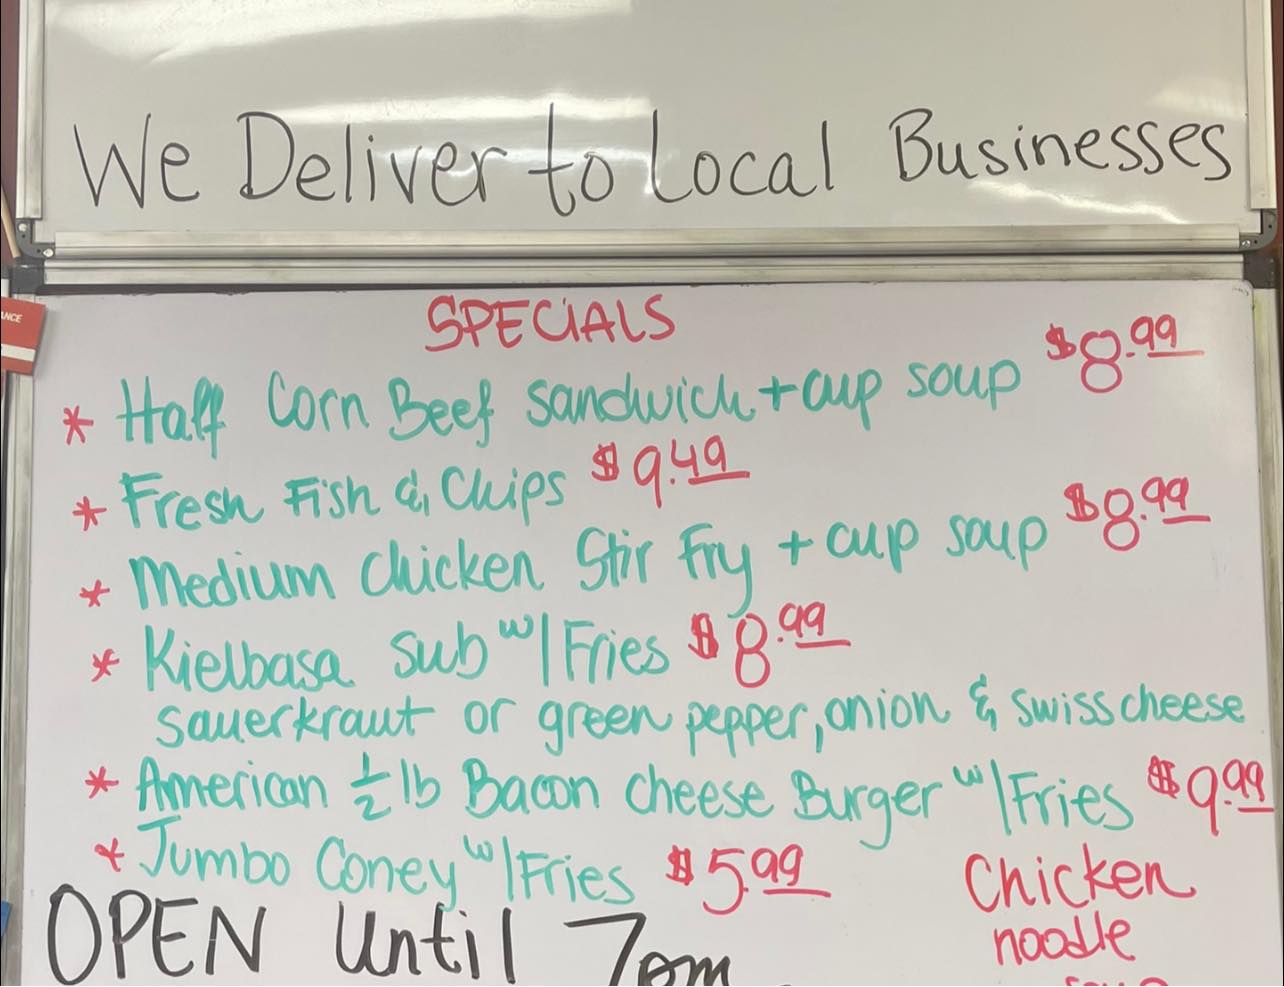 We Deliver to Local Businesses
ANCE
SPECIALS
* Half Corn Beef sandwich + cup soup $8.99
* Fresh Fish & Chips $9.49
* Medium Chicken Stir Fry + cup soup $8.99
* Kielbasa sub w/ Fries $8.99
sauerkraut or green pepper, onion & swiss cheese
* American 1/2 lb Bacon cheese Burger w/ Fries $9.99
* Jumbo Coney w/ Fries $5.99
Chicken
noodle
OPEN Until 7pm